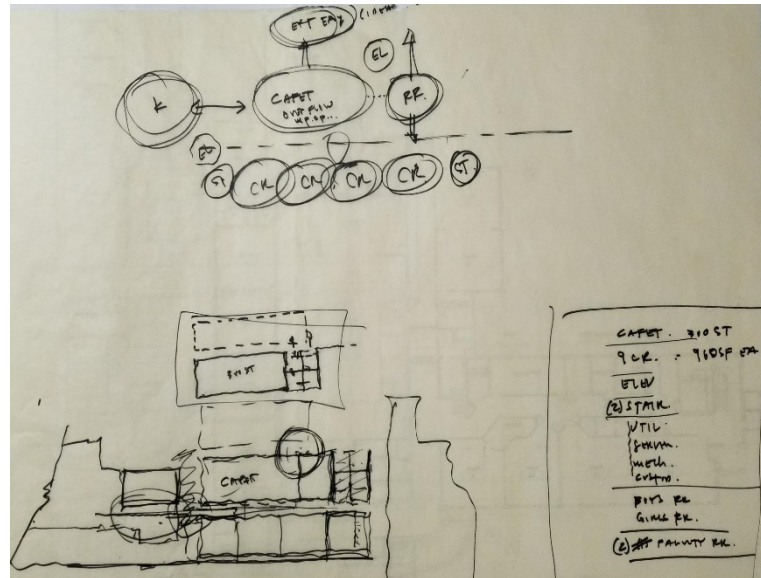 EXT EAT
EL
K
CAFET
OVERFLOW
RR.
EL
ST
CR
CR
CR
CR
ST
300 ST
CAFET
CAFET. 300 ST
9 CR. = 960SF EA
ELEV
(2) STAIR.
UTIL.
MECH.
BOYS RR
GIRLS RR.
(2) FACULTY RR.